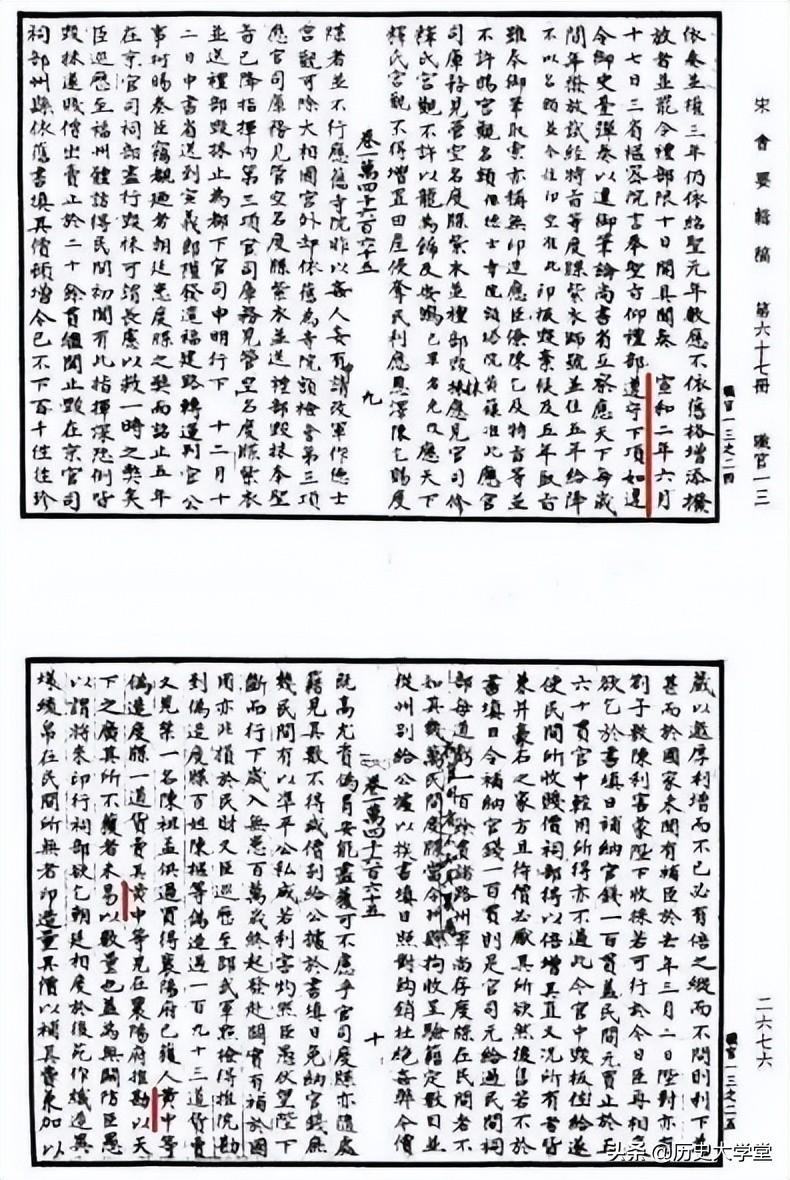 宋會要輯稿 第六十七冊 職官一三
職官一三之二四
依奏並權三年仍依紹聖元年敕應不依舊格增添撥
放者並罷令禮部限十日開具聞奏 宣和二年六月
十七日三省樞密院言奉聖旨仰禮部遵守下項如違
令御史臺彈奏以違御筆論尚書省立察應天下每歲
間年撥放試經特旨等度牒紫衣師號並住五年給降
不以名額並令住印空准此 印板毀棄候及五年取旨
雖奉御筆取索亦稱無印造應臣僚陳乞及特旨等並
不許賜宮觀名額 德士寺院額塔院黃籙准此應官
司庫務見管空名度牒紫衣並禮部毀抹應見官司修
釋氏宮觀不許以龍為飾及安鴟 已畢者免改應天下
釋氏宮觀不得增置田屋侵奪民利應恩澤陳乞賜度
卷一萬四千六百六十五 九
牒者並不行應舊寺院昨以姦人妄有請改軍作德士
宮觀可除大相國宮外卻依舊為寺院額檢會第三項
應官司庫務見管空名度牒紫衣並送禮部毀抹奉聖
旨已降指揮內第三項官司庫務見管空名度牒紫衣
並送禮部毀抹止為都下官司申明行下 十二月十
二日中書省送到宣義郎發遣福建路轉運判官公
事柯暘奏臣竊觀邇者朝廷患度牒之弊而詔止五年
在京官司祠部盡行毀抹可謂長慮以救一時之弊矣
臣巡歷至福州體訪得民間初聞有此指揮深恐例皆
毀抹遂賤價出賣止於二十餘貫繼聞止毀在京官司
祠部州縣依舊書填其價頓增今已不下百千往往珍
二六七六
職官一三之二五
藏以邀厚利增而不已必有倍之縱而不問則利下
甚而於國家未聞有補臣於去年三月二日陛對亦有
劄子敷陳利害蒙陛下收採若可行於今日臣再相
欲乞於書填日補納官錢一百貫蓋民間元買止於五
六十貫官中輕用所得亦不過此今官中毀板住給遂
使民間所收賤價祠部得以倍增其直又況所有者皆
兼并豪右之家方且待價必厭其所欲然後售若不於
書填日令補納官錢一百貫則是官司元給過民間祠
部每道一百餘貫諸路州軍尚存度牒在民間者不
如其幾萬民間度牒當令州縣拘收呈驗籍定數目並
從州別給公據以換書填日照對鈎銷杜絕姦弊令價
卷一萬四千六百六十五 十
既高尤責偽冒安能盡獲可不慮乎官司度牒亦隨處
籍見其數不得減價別給公據於書填日免納官錢庶
幾民間有以準平公私咸若利害灼然臣愚伏望陛下
斷而行下歲入無慮百萬歲終起發赴闕實有補於國
用亦非損於民財又臣巡歷至邵武軍點檢得推院勘
到偽造度牒百姓陳榅等偽造過一百九十三道貨賣
又見禁一名陳祖孟供通買得襄陽府已獲人黃中等
偽造度牒一道貨賣其黃中等見在襄陽府推勘以天
下之廣其所不獲者未易以數量也蓋為無關防臣愚
以謂將來印行祠部欲乞朝廷相度於後苑作織造異
樣綾帛在民間所無者印造量其價以補其費兼加以
头条 @历史大学堂